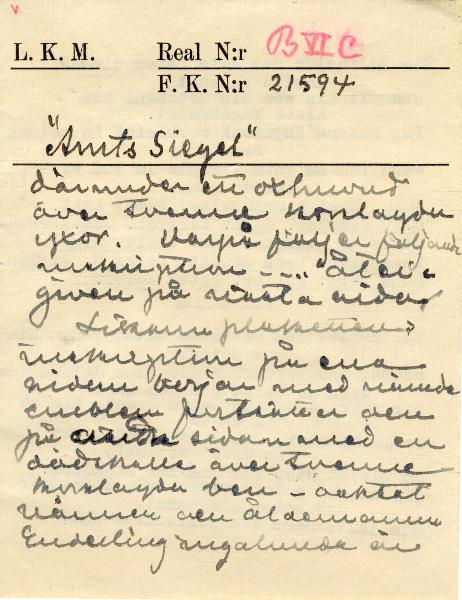 L. K. M. Real N:r B VI C
F. K. N:r 21594
"Amts Siegel"
därunder ett oxhuvud
över tvenne korslagda
yxor. Varpå följer följande
inskription
given på nästa sida
Liksom plakettens
inskription på ena
sidan börjar med nämnda
emblem fortsätter den
på andra sidan med en
dödskalle över tvenne
korslagda ben – oaktat
nämnde och åldermannen
Enderling ingalunda är